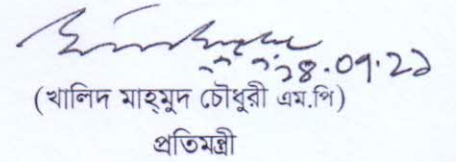 ২৪.০৭.২১
(খালিদ মাহ্‌মুদ চৌধুরী এম.পি)
প্রতিমন্ত্রী